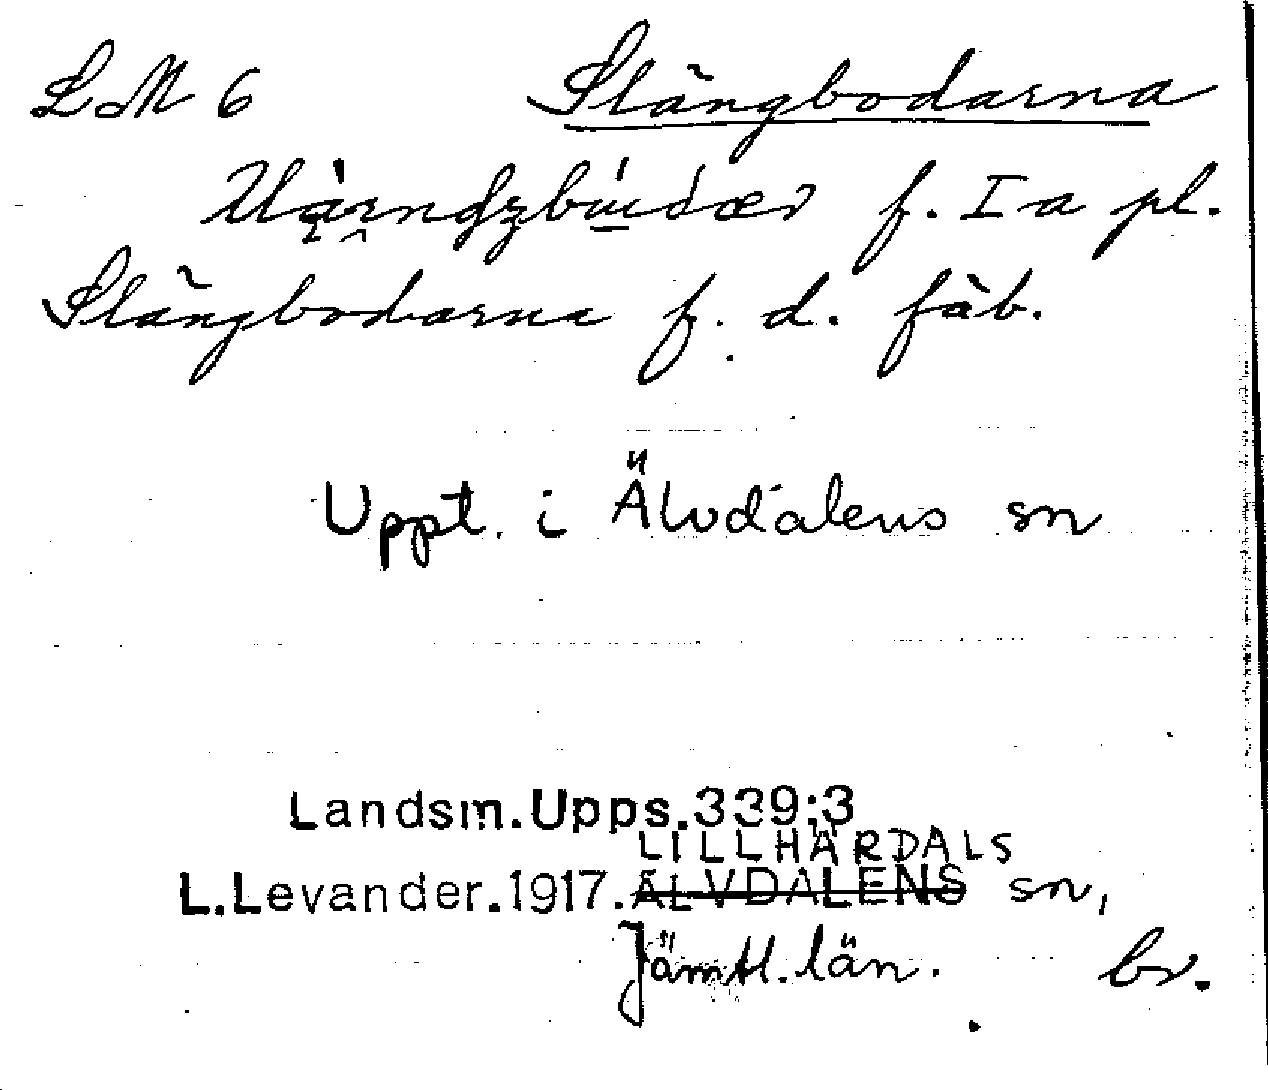 LM 6 Slängbodarna
f. I a pl.
Slängbodarna f. d. fäb.
Uppt. i Älvdalens sn
Landsm.Upps.339:3
LILLHÄRDALS
L.Levander.1917.ÄLVDALENS sn,
Jämtl. län. bv.